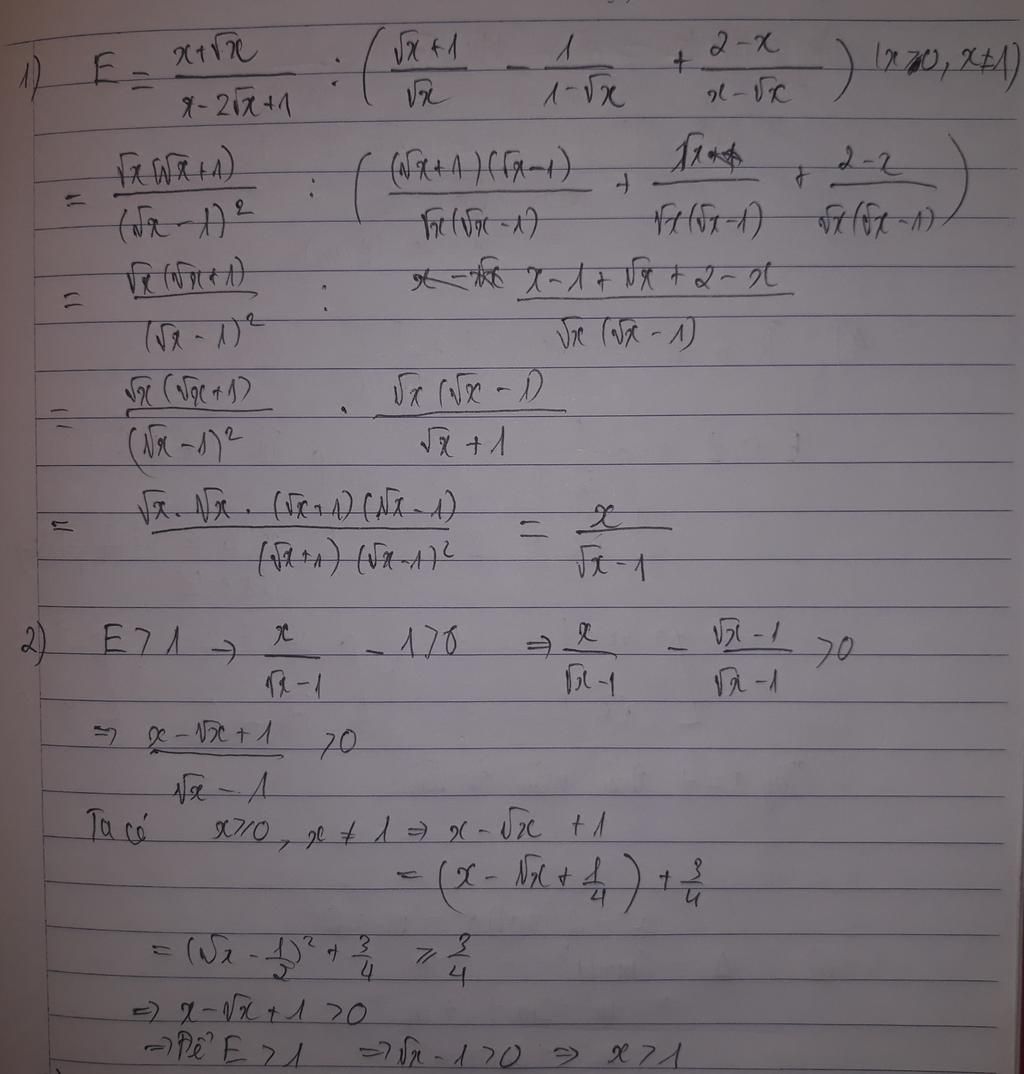 1) E = (x+√x)/(x-2√x+1) : ( (√x+1)/√x - 1/(1-√x) + (2-x)/(x-√x) ) (x>0, x≠1)
= √x(√x+1)/(√x-1)² : ( (√x+1)(√x-1)/(√x(√x-1)) + √x/(√x(√x-1)) + (2-x)/(√x(√x-1)) )
= √x(√x+1)/(√x-1)² : (x-1+√x+2-x)/(√x(√x-1))
= √x(√x+1)/(√x-1)² . √x(√x-1)/(√x+1)
= √x.√x.(√x+1)(√x-1)/((√x+1)(√x-1)²) = x/(√x-1)
2) E>1 → x/(√x-1) - 1>0 ⇒ x/(√x-1) - (√x-1)/(√x-1) >0
⇒ (x-√x+1)/(√x-1) >0
Ta có x≥0, x≠1 ⇒ x-√x+1
= (x-√x+1/4) + 3/4
= (√x-1/2)² + 3/4 ≥ 3/4
⇒ x-√x+1>0
⇒ Để E>1 ⇒ √x-1>0 ⇒ x>1